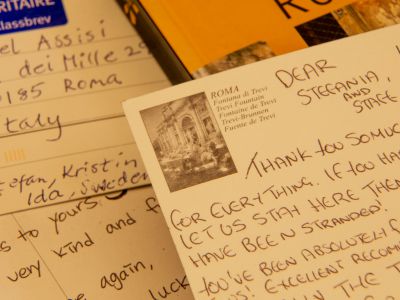 RITAIRE
lassbrev
el Assisi
dei Mille
0185 Roma
Italy
Stefan, Kristin
Ida, Sweden
to yours
very kind and f
e again,
luck
RO
ROMA
Fontana di Trevi
Trevi Fountain
Fontaine de Trevi
Trevi-Brunnen
Fuente de Trevi
DEAR
STEFANIA,
AND
STAFF
THANK YOU SO MUC
FOR EVERYTHING. IF YOU HA
LET US STAY HERE THEN
HAVE BEEN STRANDED!
YOU'VE BEEN ABSOLUTELY F
EXCELLENT RECOM
THE T